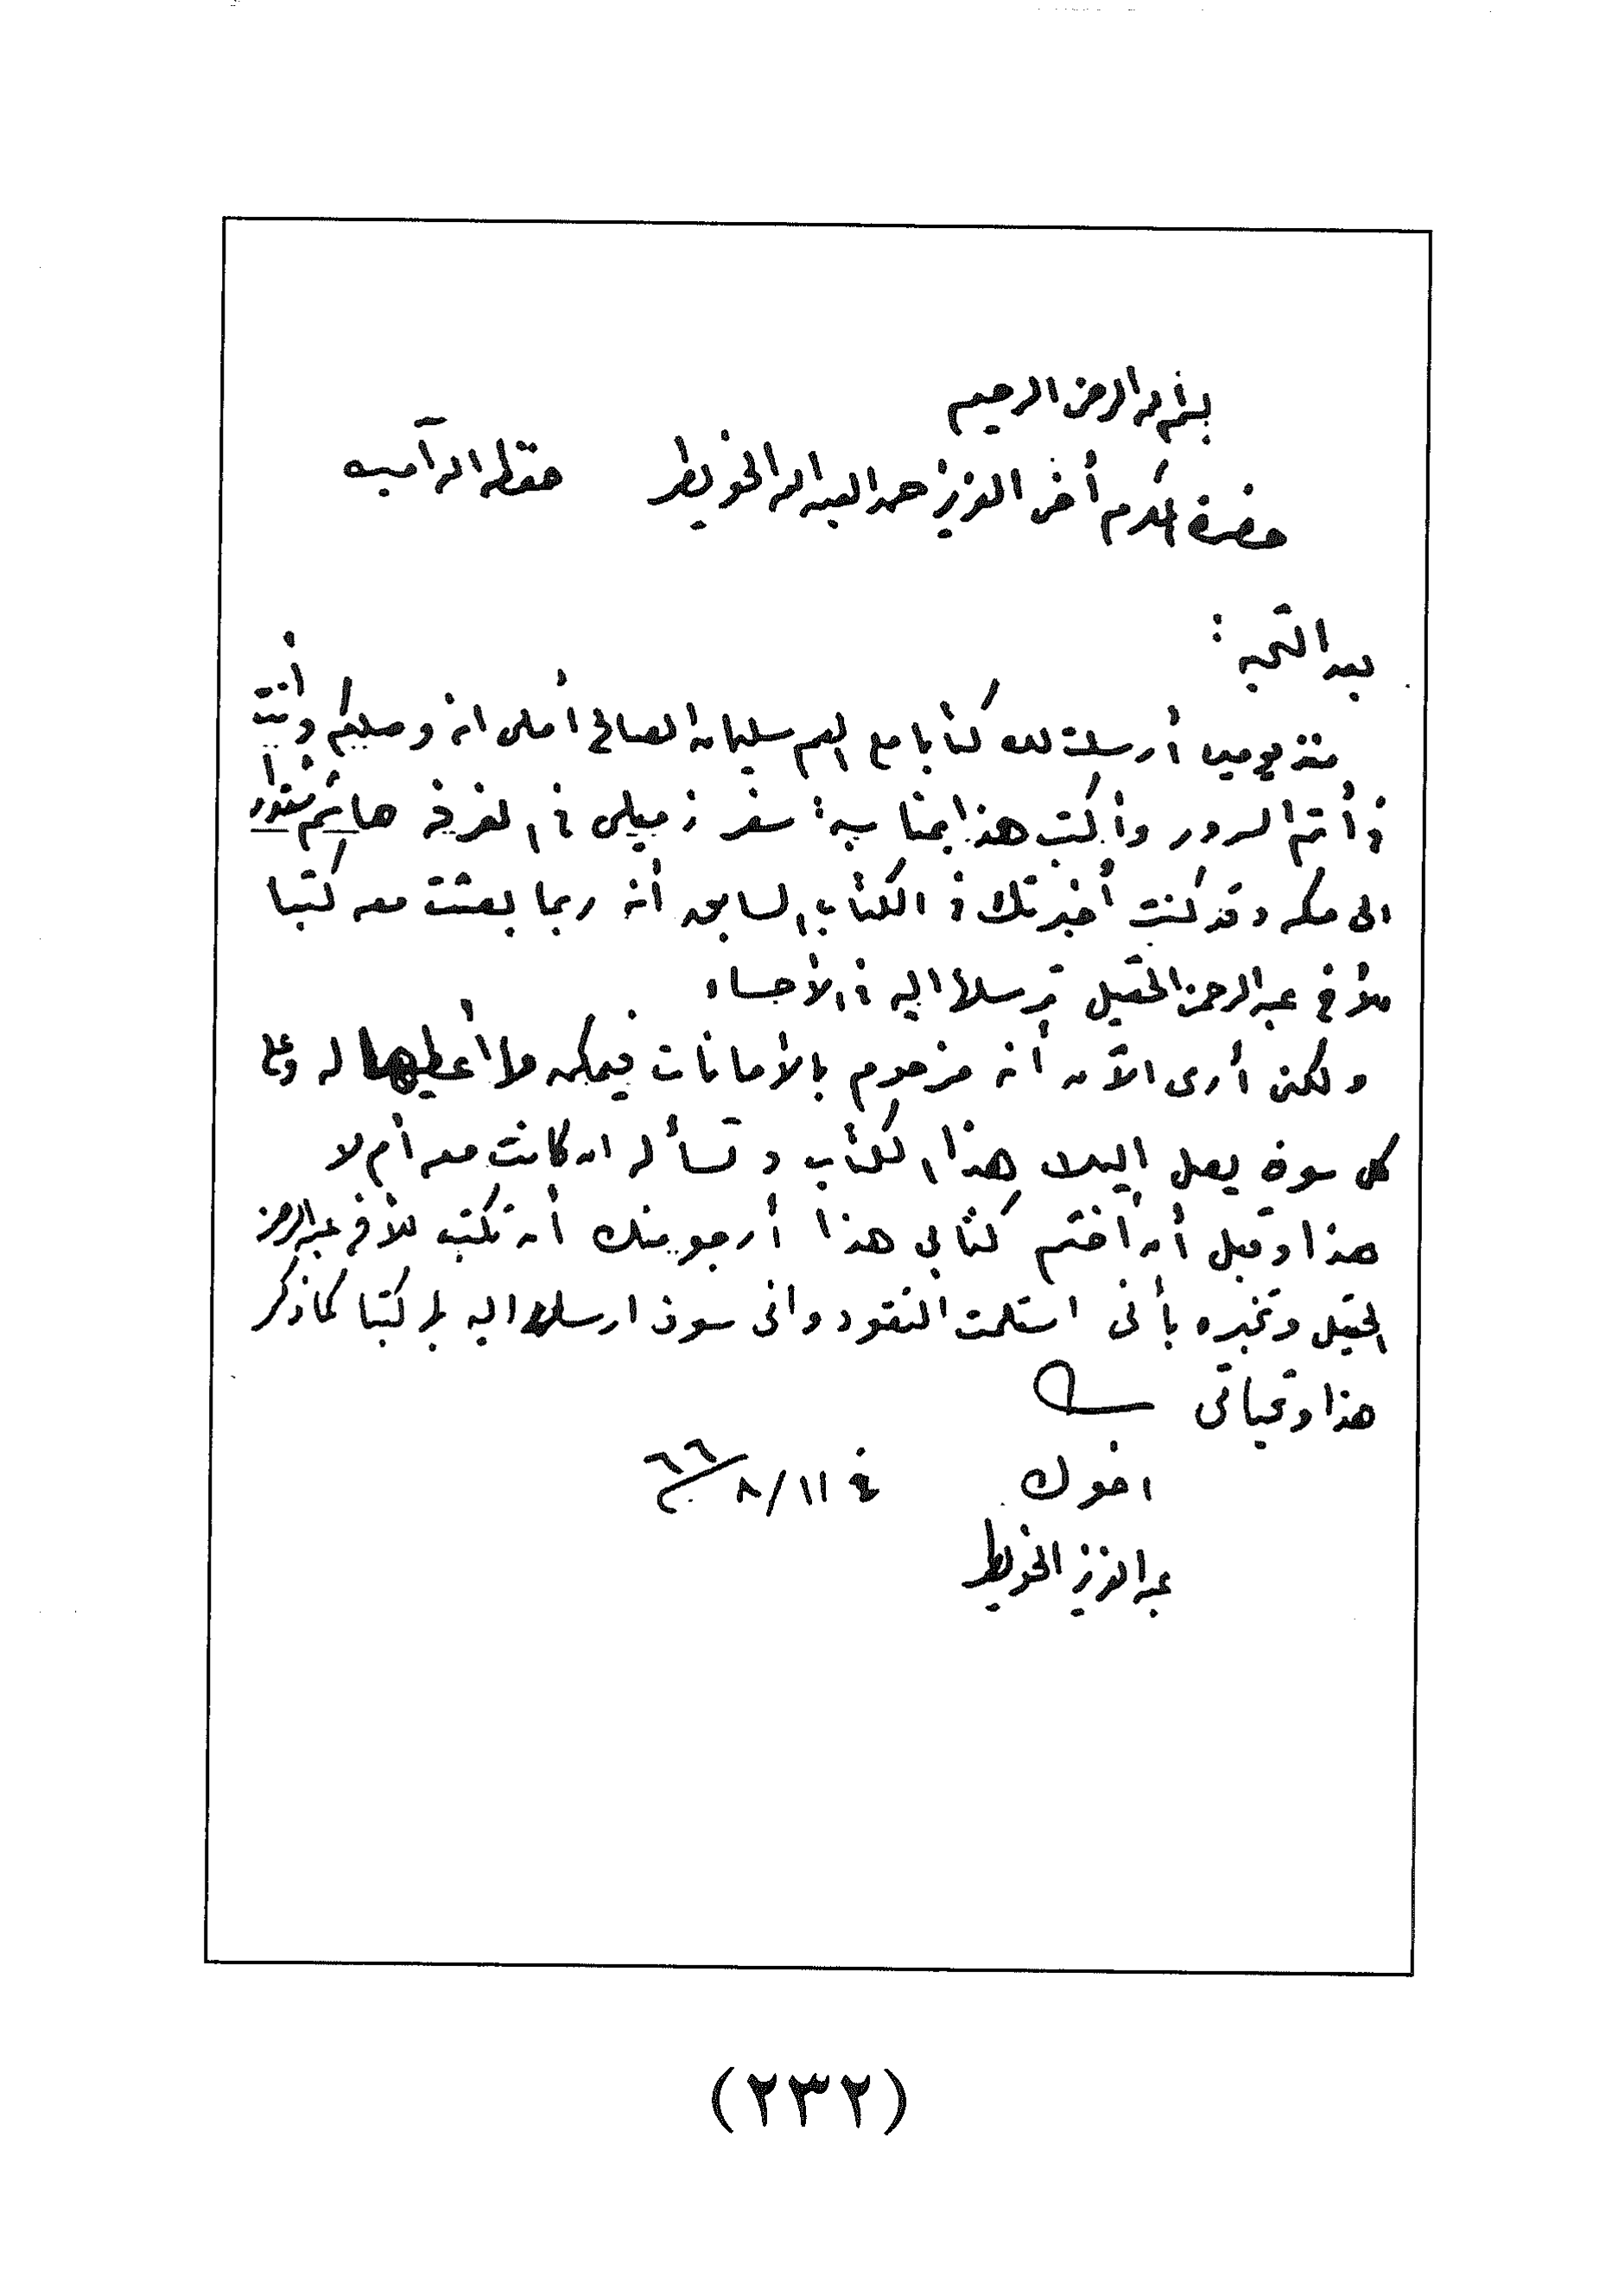 بسم الله الرحمن الرحيم
حضرة المكرم أخى العزيز حمد العبدالله الخويطر حفظه الله آمين
بعد التحية :
منذ يومين أرسلت لك كتابا مع العم سليمان الصالح أملى انه وصليكم وأنت
فى أتم السرور وأكتب هذا بمناسبة سفر زميلى فى الغرفة هاشم شقدار
الى مكه وقد كنت أخبرتك فى الكتاب السابق أنه ربما بعثت معه كتبا
للأخ عبدالرحمن الحقيل ترسلها اليه فى الأحساء
ولكن أرى الآن أنه مزحوم بالأمانات فيمكن ما أعطيها له وعلى
كل سوف يصل اليك هذا الكتاب وتسأله ان كانت معه أم لا
هذا وقبل أن أختم كتابى هذا أرجو منك أن تكتب للأخ عبدالرحمن
الحقيل وتخبره بأنى استلمت النقود وانى سوف ارسل اليه بها كتبا كما ذكر
هذا وتحياتى
اخوك فى ١١/٨/٦٦
عبدالعزيز الخويطر
(٢٣٢)